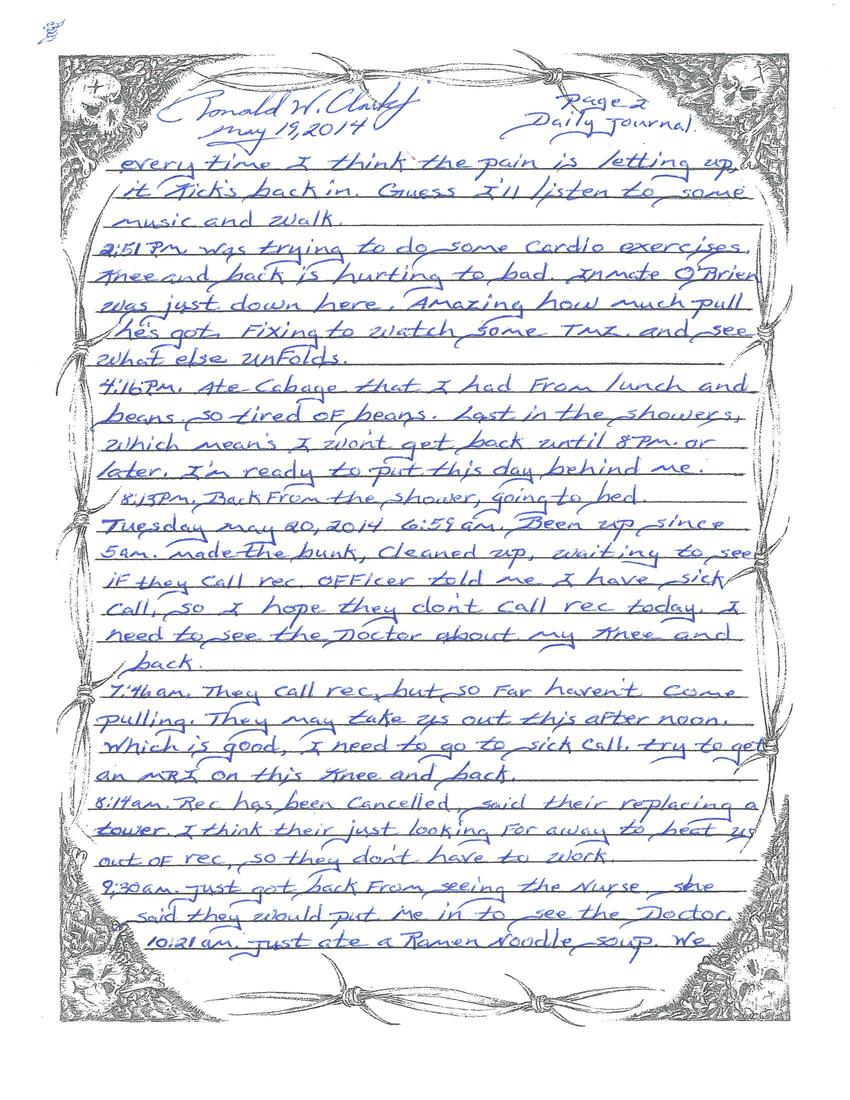 Ronald W. Clark Jr
Page 2
May 19, 2014
Daily Journal.
every time I think the pain is letting up,
it Kick's back in. Guess I'll listen to some
music and walk.
2:51 PM. Was trying to do some Cardio exercises.
Knee and back is hurting to bad. Inmate O'Brien
was just down here. Amazing how much pull
he's got. Fixing to watch some TMZ. and see
what else unfolds.
4:16 PM. Ate Cabage that I had From lunch and
beans. so tired OF beans. Last in the showers,
which mean's I won't get back until 8 PM. or
later. I'm ready to put this day behind me.
8:13 PM. Back From the shower, going to bed.
Tuesday May 20, 2014 6:59 am. Been up since
5am. made the bunk, Cleaned up, waiting to see
if they Call rec. OFFicer told me I have sick
Call, so I hope they don't Call rec today. I
need to see the Doctor about my Knee and
back.
7:46 am. They Call rec, but so Far haven't Come
pulling. They may take us out this after noon.
Which is good, I need to go to sick Call. try to get
an MRI on this Knee and back.
8:14 am. Rec has been Cancelled, said their replacing a
tower. I think their just looking For away to beat us
out OF rec, so they don't have to work.
9:30 am. just got back From seeing the Nurse, she
said they would put me in to see the Doctor.
10:21 am. just ate a Ramen Noodle soup. We